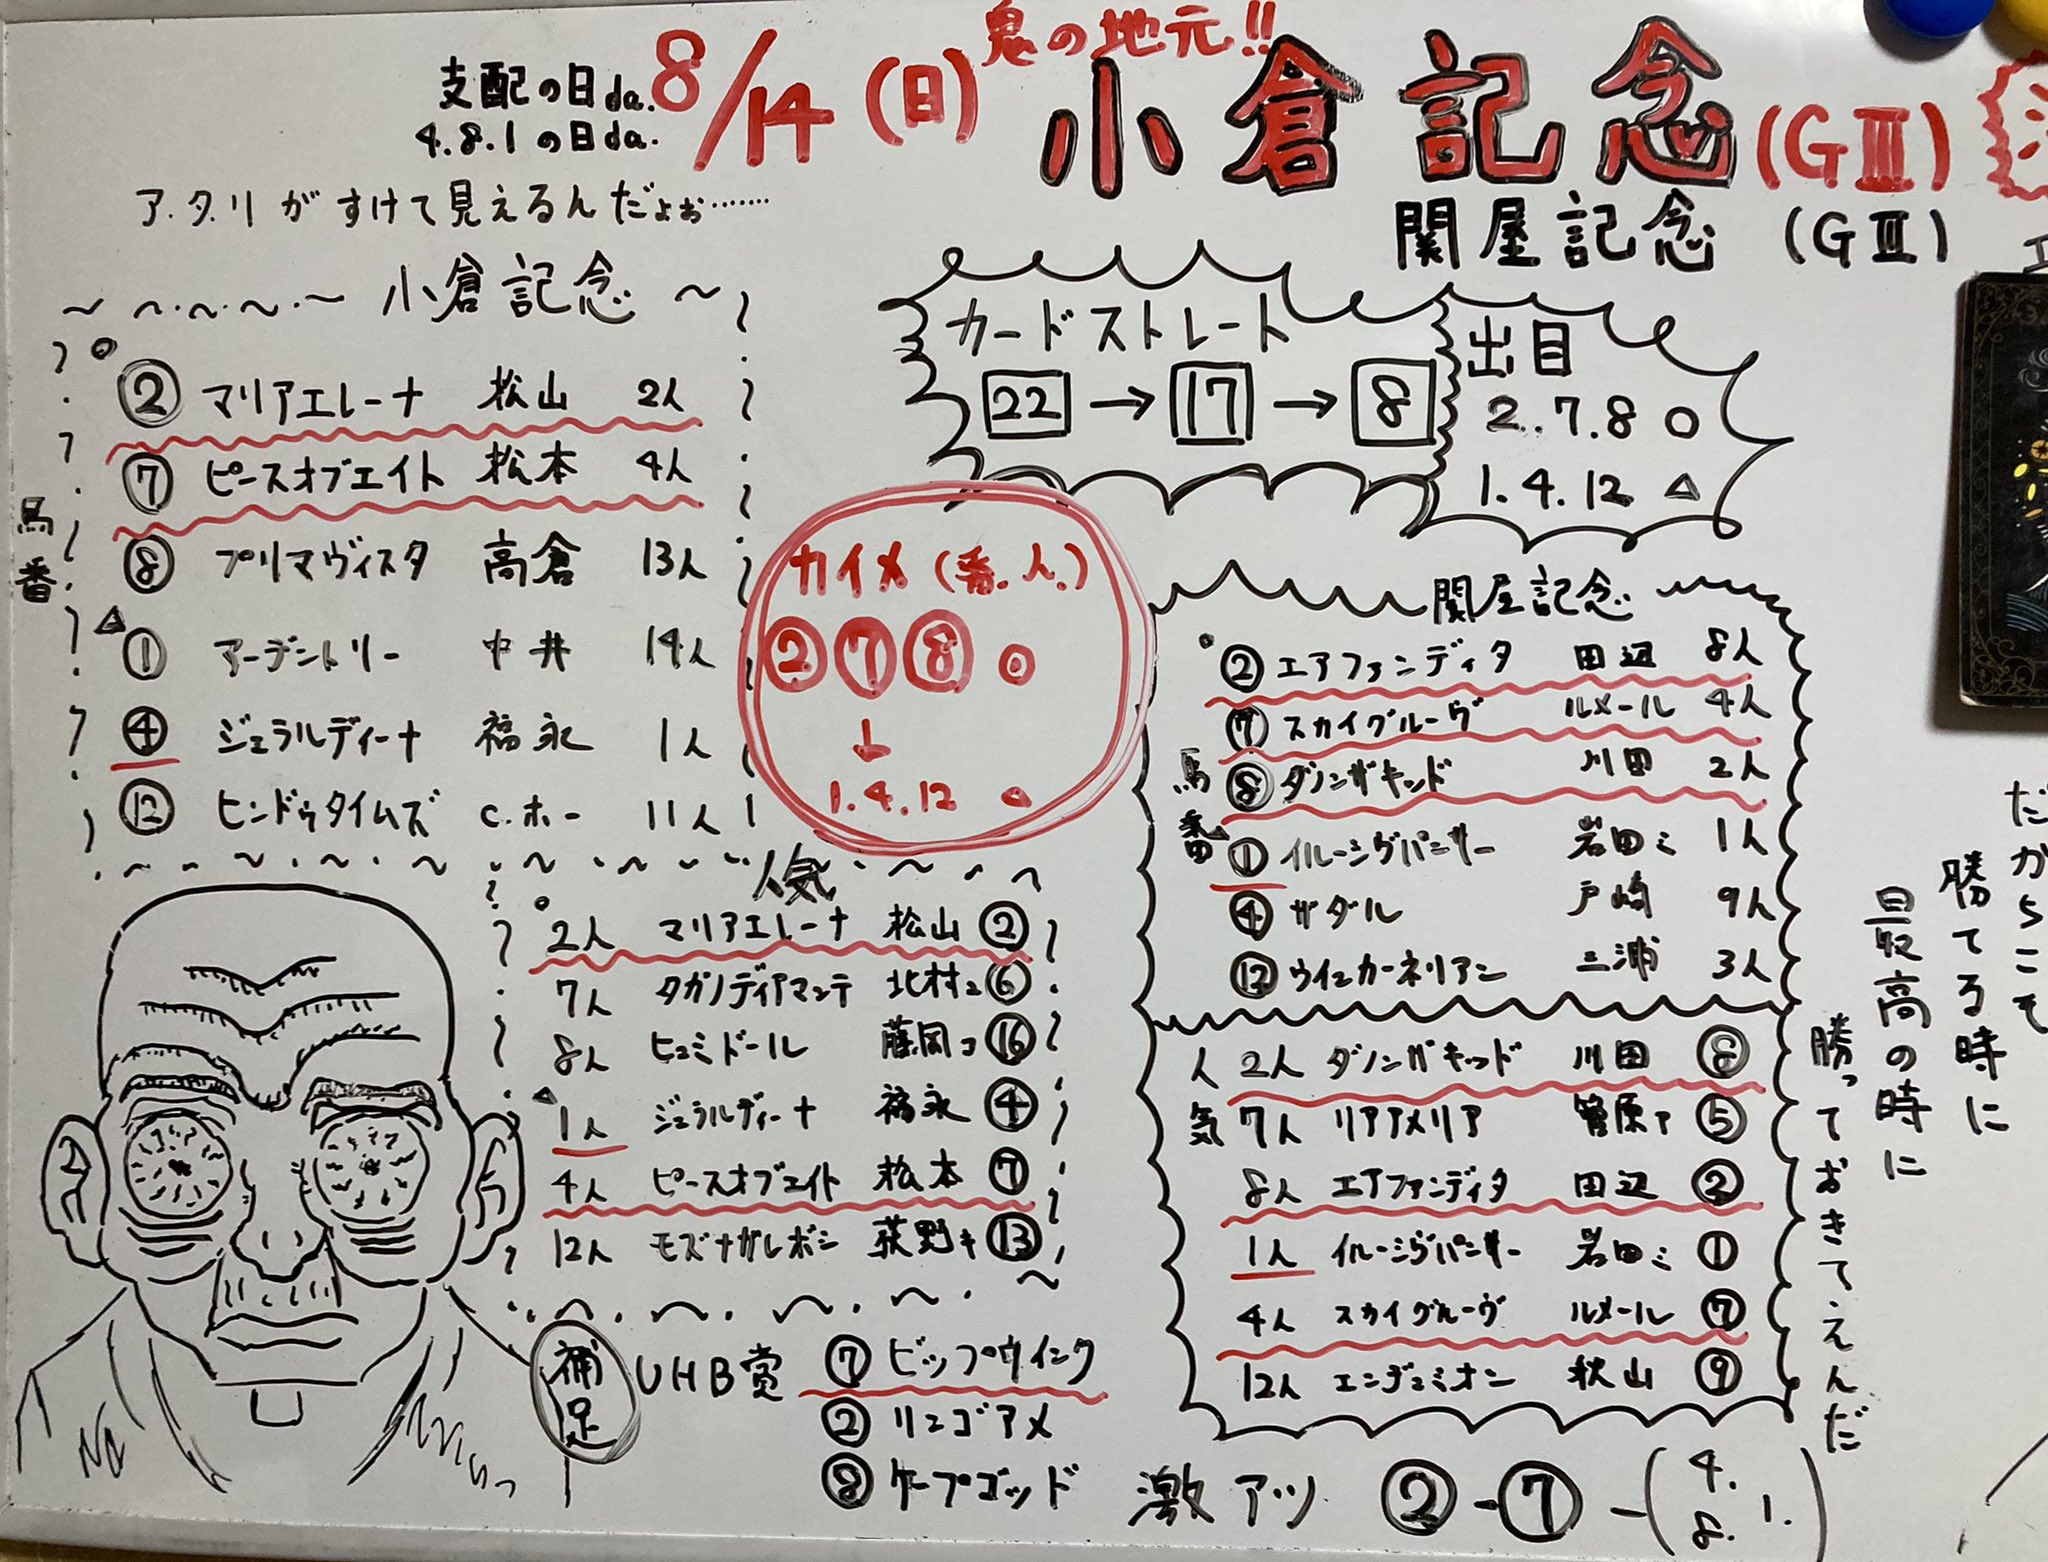 鬼の地元!!
支配の日da.
4.8.1の日da.
8/14(日)
小倉記念(GⅢ)
関屋記念(GⅢ)
ア.タ.リがすけて見えるんだょぉ‥‥‥
小倉記念
馬番
○
② マリアエレーナ 松山 2人
⑦ ピースオブエイト 松本 4人
⑧ プリマヴィスタ 高倉 13人
△
① アーデントリー 中井 14人
④ ジェラルディーナ 福永 1人
⑫ ヒンドゥタイムズ C.ホー 11人
カードストレート
22→17→8
出目
2.7.8 ○
1.4.12 △
カイメ(番.人.)
②⑦⑧ ○
↓
1.4.12 △
人気
○
2人 マリアエレーナ 松山 ②
7人 タガノディアマンテ 北村ユ ⑥
8人 ヒュミドール 藤岡コ ⑯
△
1人 ジェラルディーナ 福永 ④
4人 ピースオブエイト 松本 ⑦
12人 モズナガレボシ 荻野キ ⑬
関屋記念
馬番
○
② エアファンディタ 田辺 8人
⑦ スカイグルーヴ ルメール 4人
⑧ ダノンザキッド 川田 2人
△
① イルーシヴパンサー 岩田ミ 1人
④ ザダル 戸崎 9人
⑫ ウインカーネリアン 三浦 3人
人気
2人 ダノンザキッド 川田 ⑧
7人 リアアメリア 菅原ア ⑤
8人 エアファンディタ 田辺 ②
1人 イルーシヴパンサー 岩田ミ ①
4人 スカイグルーヴ ルメール ⑦
12人 エンデュミオン 秋山 ⑨
補足
UHB賞
⑦ ビップウインク
② リンゴアメ
⑧ ケープゴッド
激アツ ②-⑦-(4.8.1.)
だからこそ
勝てる時に
最高の時に
勝っておきてえんだ